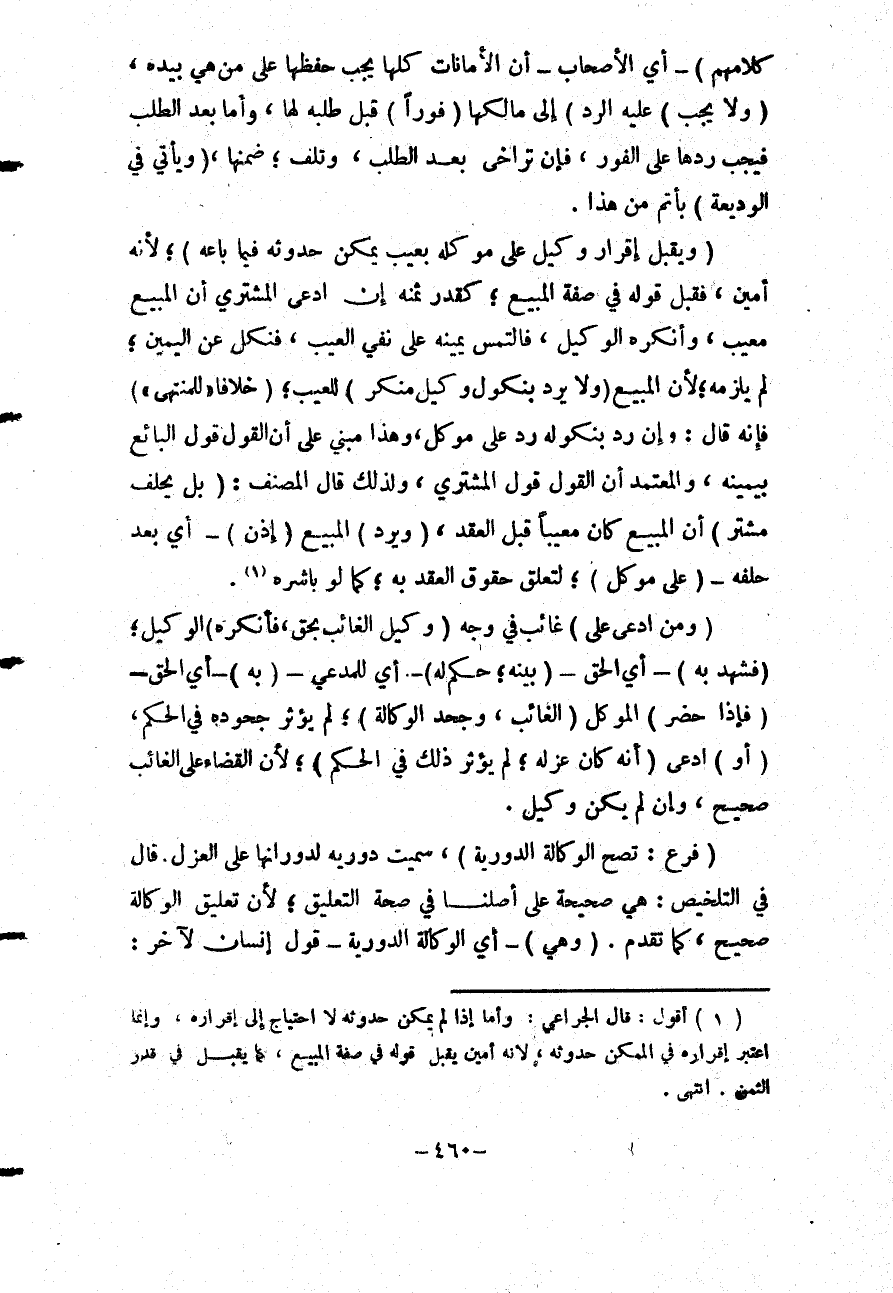 كلامهم ) – أي الأصحاب – أن الأمانات كلها يجب حفظها على من هي بيده ،
( ولا يجب ) عليه الرد ) إلى مالكها ( فوراً ) قبل طلبه لها ، وأما بعد الطلب
فيجب ردها على الفور ، فإن تراخى بعد الطلب ، وتلف ؛ ضمنها ،( ويأتي في
الوديعة ) بأتم من هذا .
( ويقبل إقرار وكيل على موكله بعيب يمكن حدوثه فيما باعه ) ؛ لأنه
أمين ، فقبل قوله في صفة المبيع ؛ كقدر ثمنه إن ادعى المشتري أن المبيع
معيب ، وأنكره الوكيل ، فالتمس يمينه على نفي العيب ، فنكل عن اليمين ؛
لم يلزمه؛لأن المبيع(ولا يرد بنكول وكيل منكر ) للعيب؛ ( خلافا« للمنتهى»)
فإنه قال : وإن رد بنكوله رد على موكل،وهذا مبني على أن القول قول البائع
بيمينه ، والمعتمد أن القول قول المشتري ، ولذلك قال المصنف : ( بل يحلف
مشتر ) أن المبيع كان معيباً قبل العقد ، ( ويرد ) المبيع ( إذن ) – أي بعد
حلفه – ( على موكل ) ؛ لتعلق حقوق العقد به ؛ كما لو باشره (١) .
( ومن ادعى على ) غائب في وجه ( وكيل الغائب بحق،فأنكره)الوكيل؛
(فشهد به ) – أي الحق – ( بينه؛ حكم له)– أي للمدعي – ( به )–أي الحق–
( فإذا حضر ) الموكل ( الغائب ، وجحد الوكالة ) ؛ لم يؤثر جحوده في الحكم،
( أو ) ادعى ( أنه كان عزله ؛ لم يؤثر ذلك في الحكم ) ؛ لأن القضاء على الغائب
صحيح ، وان لم يكن وكيل .
( فرع : تصح الوكالة الدورية ) ، سميت دوريه لدورانها على العزل . قال
في التلخيص : هي صحيحة على أصلنا في صحة التعليق ؛ لأن تعليق الوكالة
صحيح ، كما تقدم . ( وهي ) – أي الوكالة الدورية – قول إنسان لآخر :
( ١ ) أقول : قال الجراعي : وأما إذا لم يمكن حدوثه لا احتياج إلى إقراره ، وإنما
اعتبر إقراره في الممكن حدوثه ، لانه أمين يقبل قوله في صفة المبيع ، كما يقبل في قدر
الثمن . انتهى .
– ٤٦٠ –